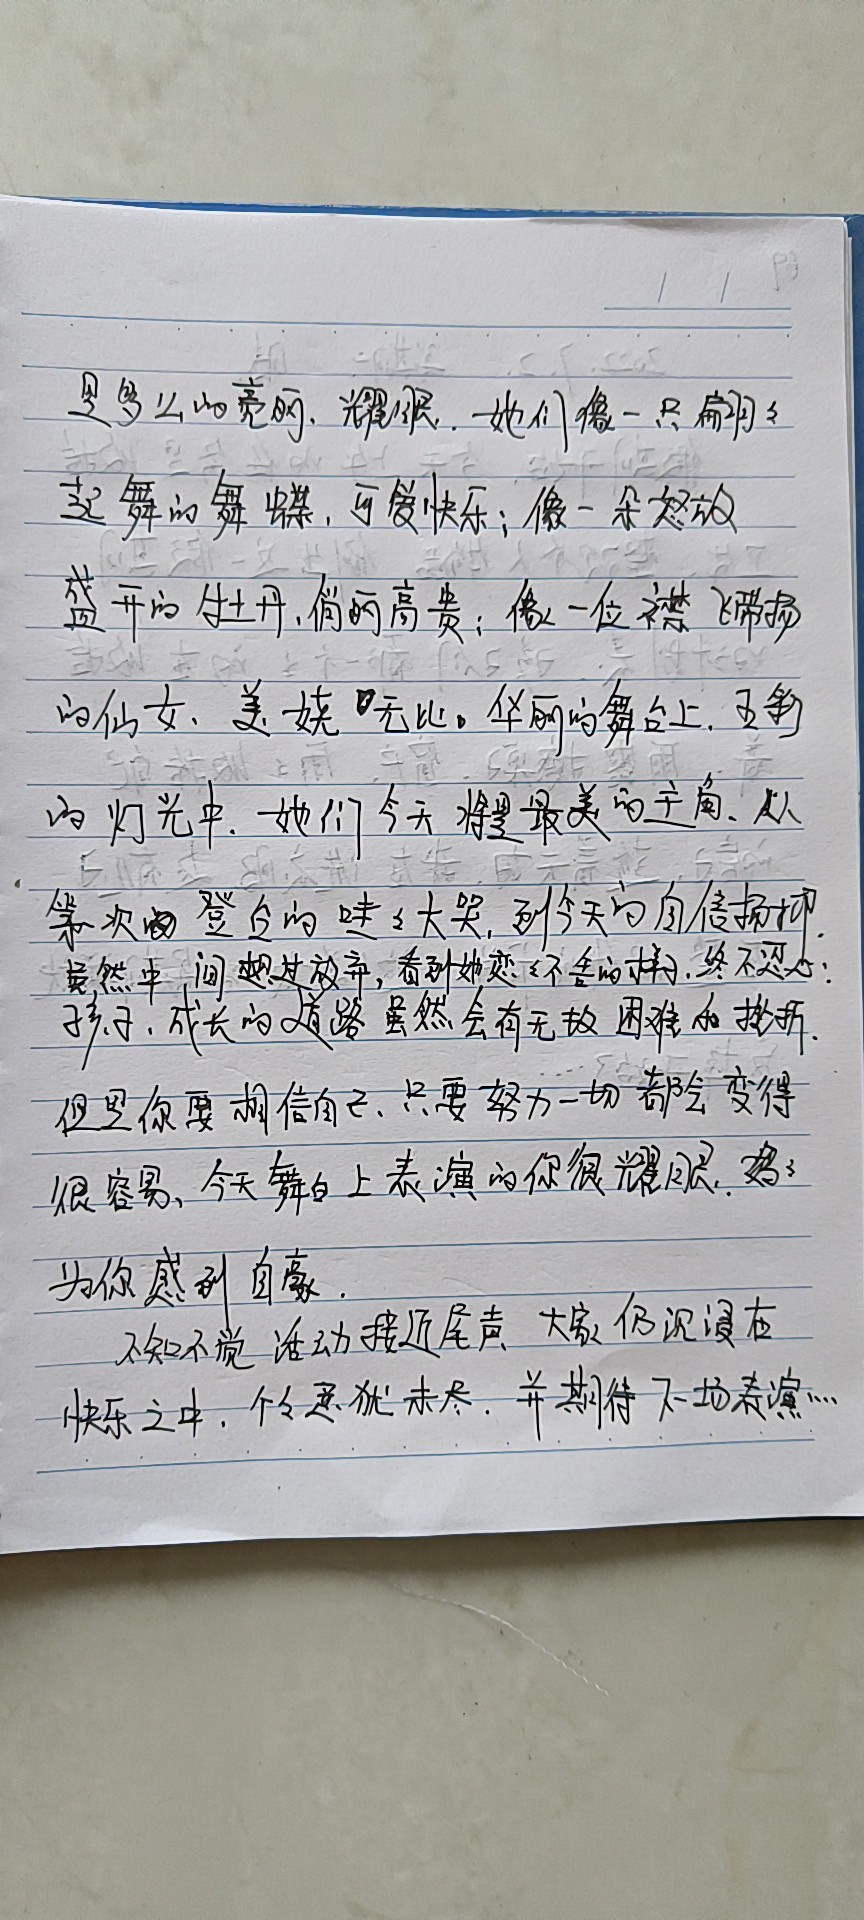 是多么的亮丽、耀眼.她们像一只扁羽々
起舞的舞蝶,可爱快乐;像一朵怒放
盛开的牡丹,俏丽高贵;像一位襟飞带扬
的仙女、美娆无比。华丽的舞台上.五彩
的灯光中.她们今天将是最美的主角、从
第次登台的哇々大哭,到今天的自信扬
虽然中间想过放弃,看到她恋々不舍的样子.终不忍心:
孩子,成长的道路虽然会有无数困难和挫折.
但是你要相信自己、只要努力一切都会变得
很容易、今天舞台上表演的你很耀眼.妈々
为你感到自豪.
不知不觉活动接近尾声 大家仍沉浸在
快乐之中.个々意犹未尽.并期待下一场表演……